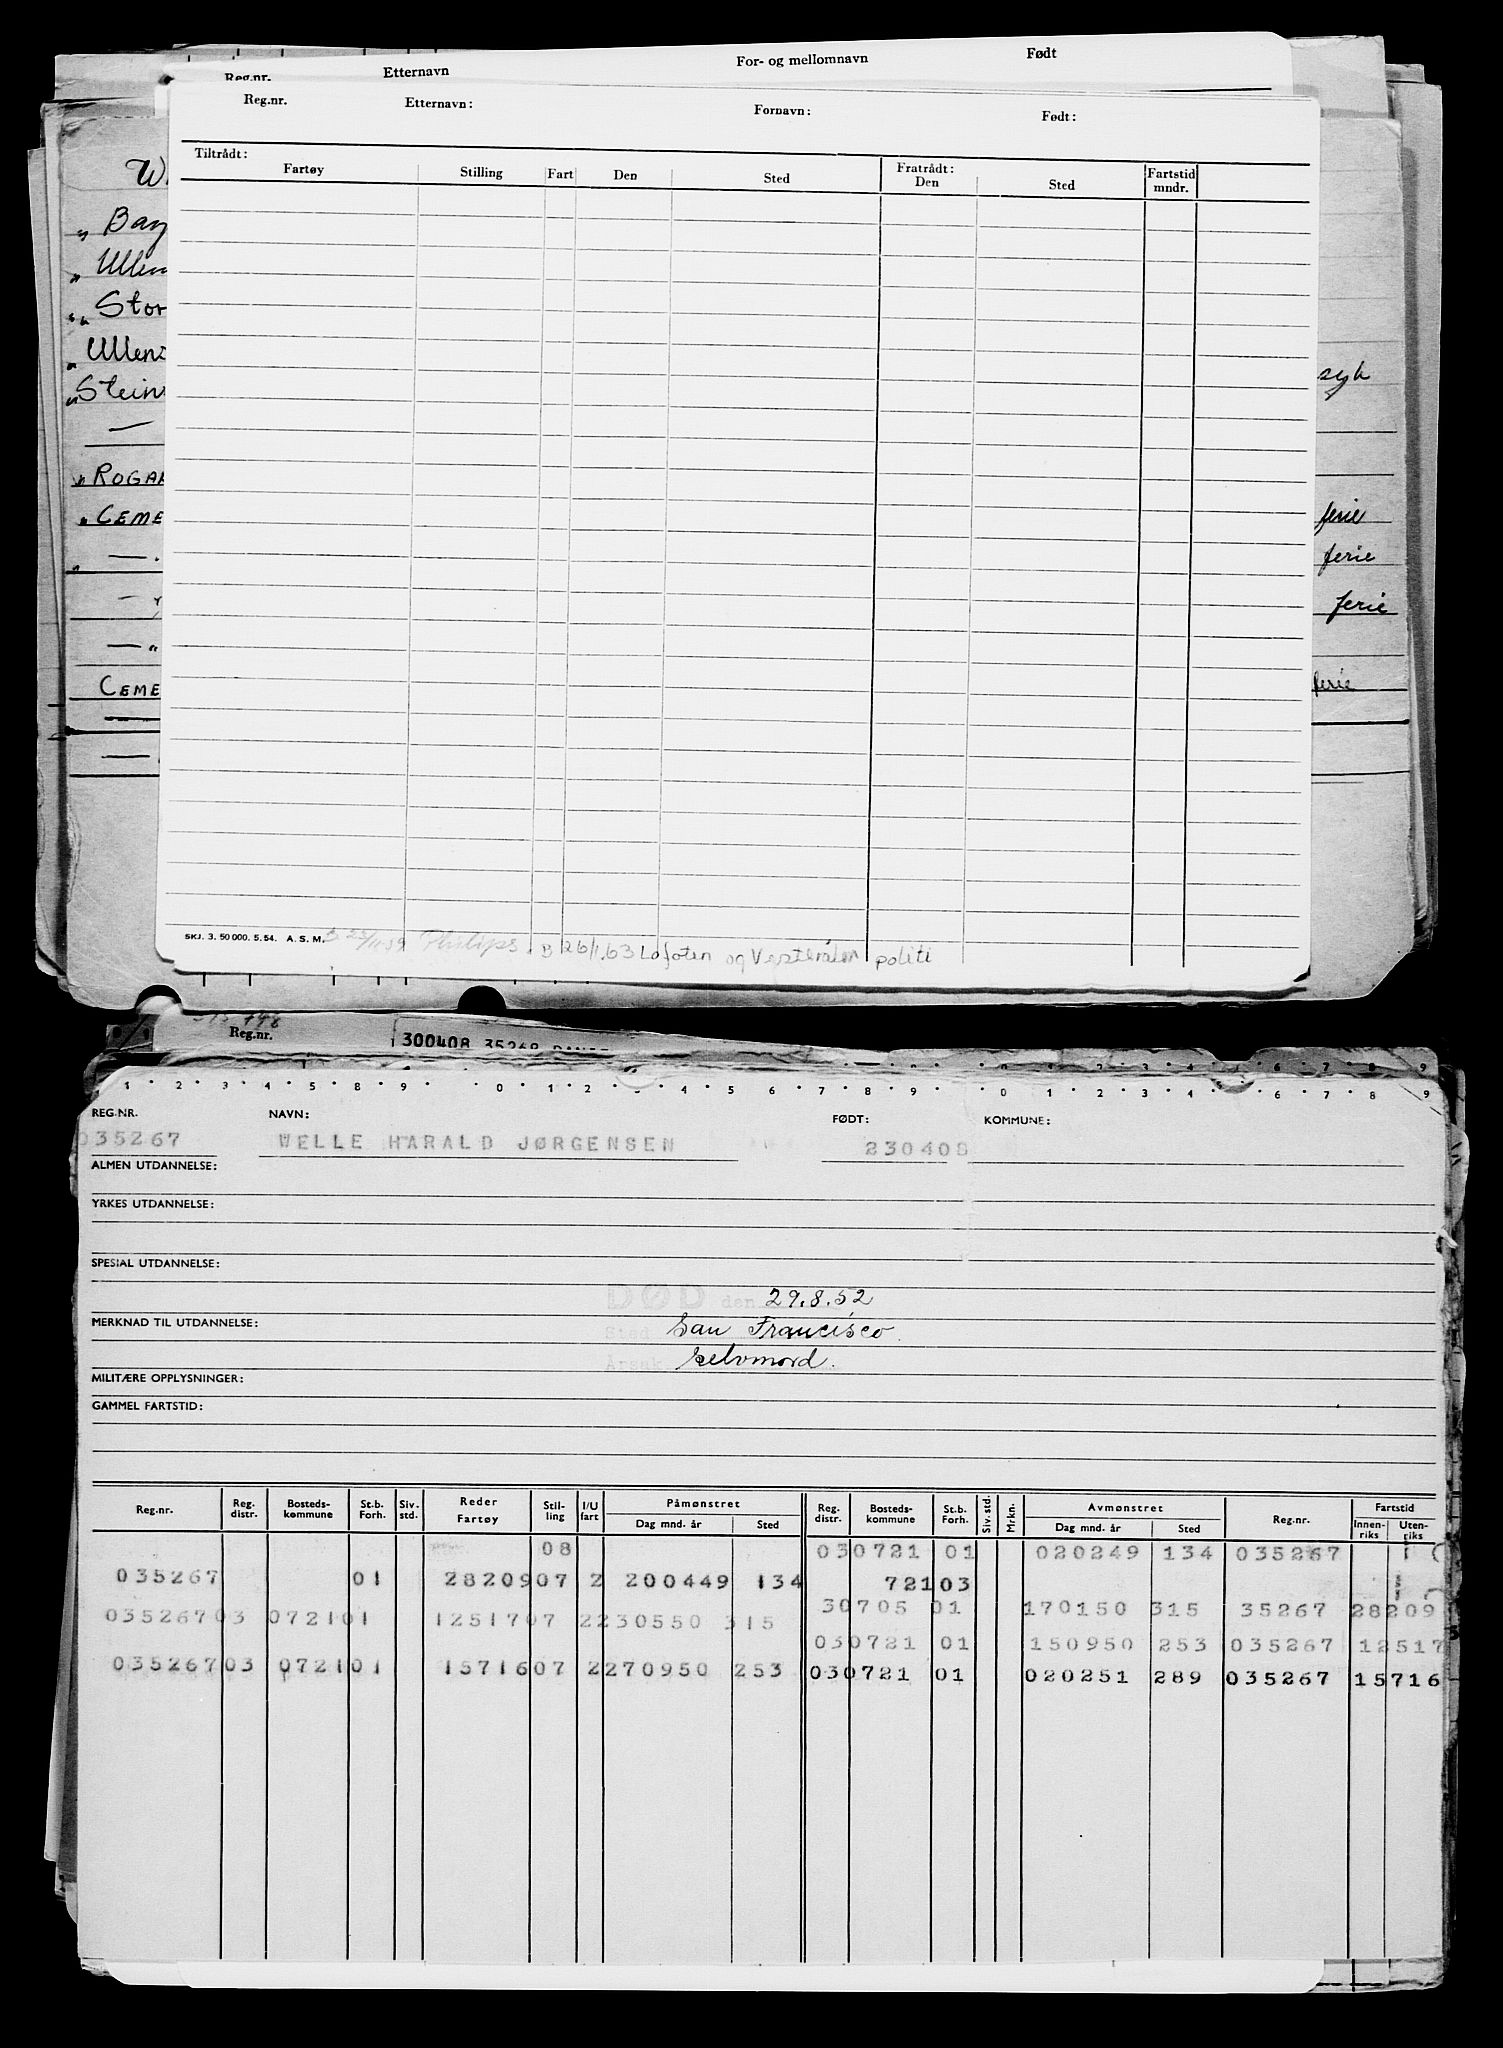 For- og mellomnavn Født
Reg.nr. Etternavn
Reg.nr. Etternavn: Fornavn: Født:
Tiltrådt: Fratrådt:
Fartøy Stilling Fart Den Sted Den Sted Fartstid mndr.
" Ullen
" Ullen
syk
" ROGA
" CEME ferie
" — ferie
— ferie
CEME ferie
SKJ. 3. 50 000. 5. 54. A. S. M. Philips B 26/1.63 Lofoten og Vesterålen politi
Reg.nr. 300408 35268
1 · 2 · 3 · 4 · 5 · 8 · 9 · 0 · 1 · 2 · 4 · 5 · 6 · 7 · 8 · 9 · 0 · 1 · 2 · 3 · 4 · 6 · 7 · 8 9
REG.NR. NAVN: FØDT: KOMMUNE:
035267 WELLE HARALD JØRGENSEN 230408
ALMEN UTDANNELSE:
YRKES UTDANNELSE:
SPESIAL UTDANNELSE:
DØD den 29.8.52
MERKNAD TIL UTDANNELSE: Sted San Francisco.
Årsak selvmord.
MILITÆRE OPPLYSNINGER:
GAMMEL FARTSTID:
Reg.nr. Reg. distr. Bosteds- kommune St.b. Forh. Siv. std. Reder Fartøy Stil- ling I/U fart Påmønstret Reg. distr. Bosteds- kommune St.b. Forh. Siv. std. Mrkn. Avmønstret Reg.nr. Fartstid
Dag mnd. år Sted Dag mnd. år Sted Innen- riks Uten- riks
08 030721 01 020249 134 035267
035267 01 2820907 2 200449 134 72103
30705 01 170150 315 35267 28209
03526703 072101 1251707 2230550 315
030721 01 150950 253 035267 12517
03526703 072101 1571607 2270950 253 030721 01 020251 289 035267 15716